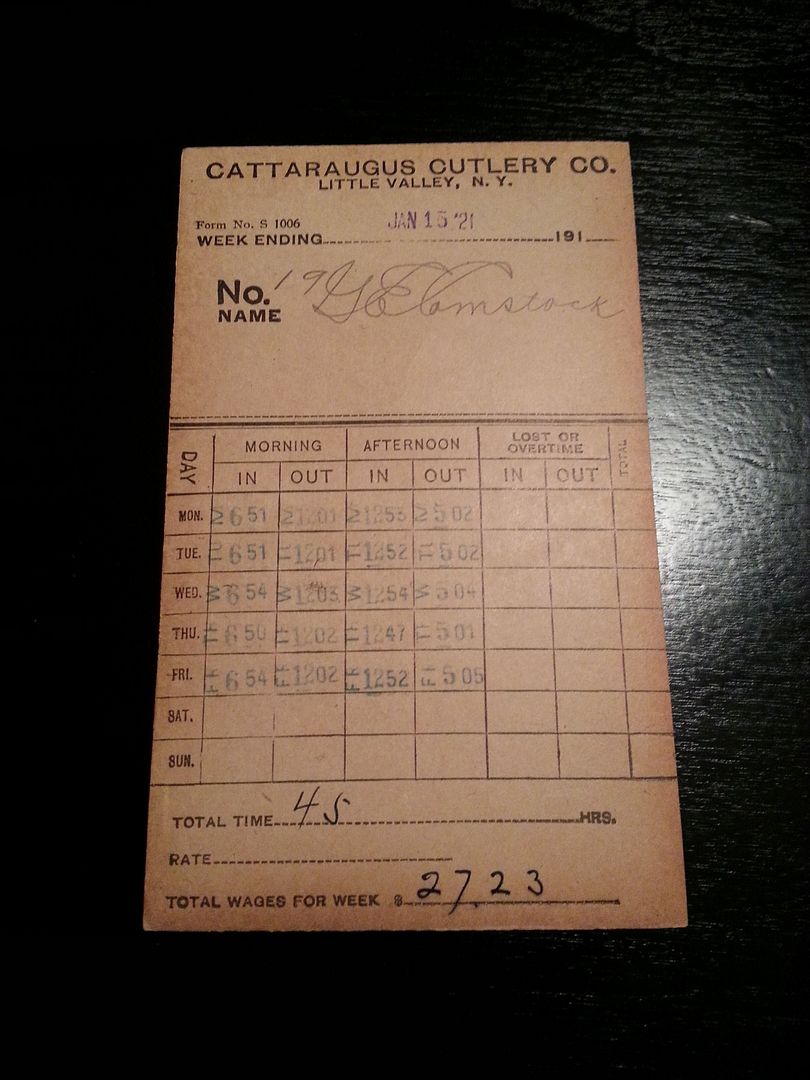 CATTARAUGUS CUTLERY CO.
LITTLE VALLEY, N. Y.
Form No. S 1006
JAN 15 '21
WEEK ENDING 191
No. 19 G E Comstock
NAME
DAY MORNING AFTERNOON LOST OR OVERTIME TOTAL
IN OUT IN OUT IN OUT
MON. M 6 51 M 12 01 M 12 53 M 5 02
TUE. TU 6 51 TU 12 01 TU 12 52 TU 5 02
WED. W 6 54 W 12 03 W 12 54 W 5 04
THU. TH 6 50 TH 12 02 TH 12 47 TH 5 01
FRI. FR 6 54 FR 12 02 FR 12 52 FR 5 05
SAT.
SUN.
TOTAL TIME 45 HRS.
RATE
TOTAL WAGES FOR WEEK $ 27.23